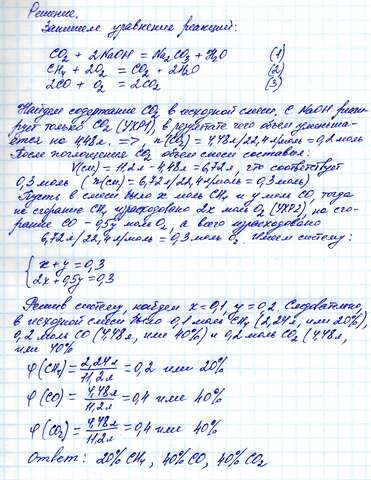 Решение.
Запишем уравнения реакций:
CO2 + 2NaOH = Na2CO3 + H2O (1)
CH4 + 2O2 = CO2 + 2H2O (2)
2CO + O2 = 2CO2 (3)
Найдем содержание CO2 в исходной смеси. С NaOH реаги-
рует только CO2 (УХР1), в результате чего объем уменьша-
ется на 4,48л. => n(CO2) = 4,48л/22,4л/моль = 0,2моль
После поглощения CO2 объем смеси составил:
V(см) = 11,2л - 4,48л = 6,72л, что соответствует
0,3моль (n(см) = 6,72л/22,4л/моль = 0,3моль)
Пусть в смеси было x моль CH4 и y моль CO, тогда
на сгорание CH4 израсходовано 2x моль O2 (УХР2), на сго-
рание CO - 0,5y моль O2, а всего израсходовано
6,72л/22,4л/моль = 0,3моль O2. Имеем систему:
x + y = 0,3
2x + 0,5y = 0,3
Решив систему, найдем x = 0,1 y = 0,2. Следовательно,
в исходной смеси было 0,1 моль CH4 (2,24л, или 20%),
0,2 моль CO (4,48л, или 40%) и 0,2 моль CO2 (4,48л,
или 40%
φ(CH4) = 2,24л/11,2л = 0,2 или 20%
φ(CO) = 4,48л/11,2л = 0,4 или 40%
φ(CO2) = 4,48л/11,2л = 0,4 или 40%
Ответ: 20% CH4, 40% CO, 40% CO2